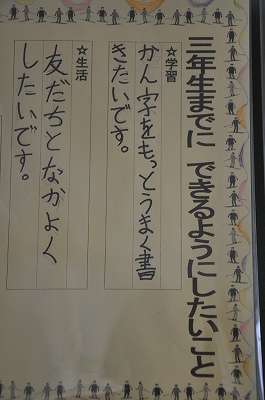 三年生までに できるようにしたいこと
☆学習
かん字をもっとうまく書
きたいです。
☆生活
友だちとなかよく
したいです。